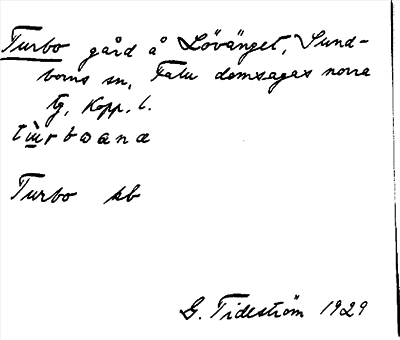 Turbo gård å Lövänget, Sund-
borns sn, Falu domsagas norra
tg, Kopp. l.
tɯ̀rboana
Turbo kb
G. Tideström 1929